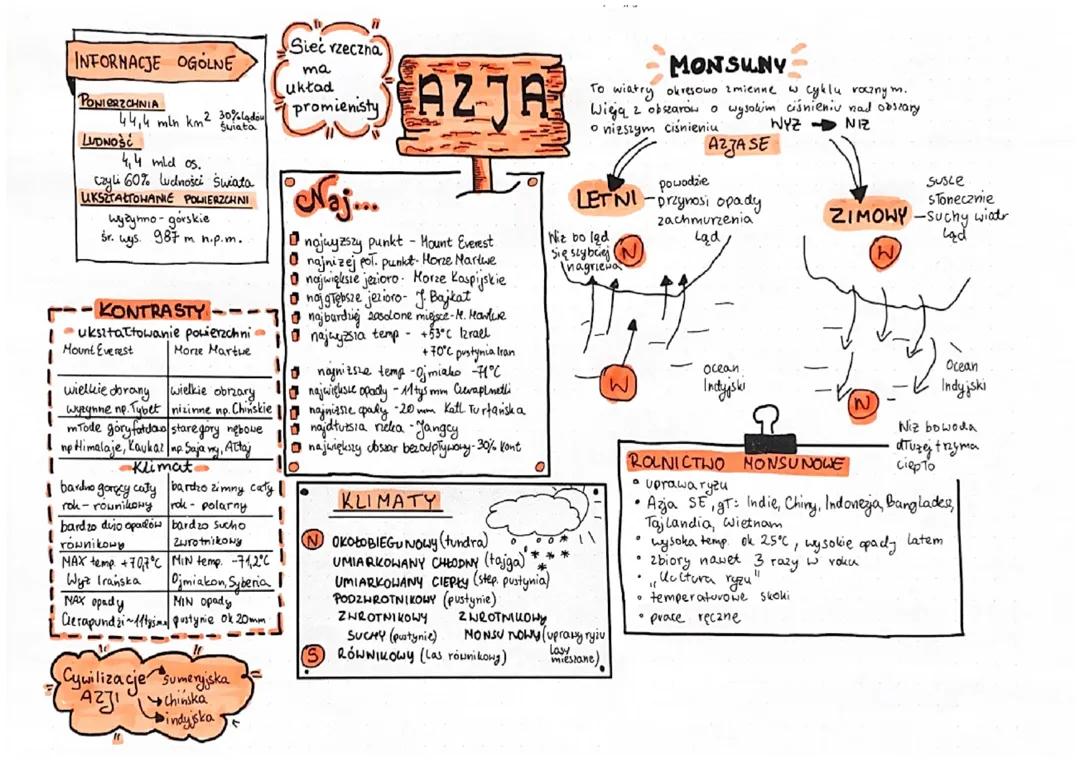 INFORMACJE OGÓLNE
POWIERZCHNIA
44,4 mln km² 30% lądów
świata
LUDNOŚĆ
4,4 mld os.
czyli 60% ludności świata
UKSZTAŁTOWANIE POWIERZCHNI
wyżynno-górskie
śr. wys. 987 m n.p.m.
Sieć rzeczna
ma
układ
promienisty
AZJA
MONSUNY
To wiatry okresowo zmienne w cyklu rocznym.
Wieją z obszarów o wysokim ciśnieniu nad obszary
o niższym ciśnieniu WYŻ → NIŻ
AZJA SE
LETNI
powodzie
przynosi opady
zachmurzenia
ląd
Niż bo ląd
się szybciej
nagrzewa
N
W
ocean
Indyjski
ZIMOWY
susze
słonecznie
suchy wiatr
ląd
W
N
Ocean
Indyjski
Niż bo woda
dłużej trzyma
ciepło
Naj...
najwyższy punkt - Mount Everest
najniżej poł. punkt - Morze Martwe
największe jezioro - Morze Kaspijskie
najgłębsze jezioro - J. Bajkał
najbardziej zasolone miejsce - M. Martwe
najwyższa temp - +53°C Izrael
+70°C pustynia Iran
najniższa temp - Ojmiako -71°C
największe opady - 11 tys mm Czerapundżi
najniższe opady - 20 mm Kotl. Turfańska
najdłuższa rzeka - Jangcy
największy obszar bezodpływowy - 30% kont
KONTRASTY
ukształtowanie powierzchni
Mount Everest | Morze Martwe
wielkie obszary | wielkie obszary
wyżynne np. Tybet | nizinne np. Chińskie
młode góry fałdowe | stare góry zrębowe
np Himalaje, Kaukaz | np. Sajany, Ałtaj
Klimat
bardzo gorący cały | bardzo zimny cały
rok - równikowy | rok - polarny
bardzo dużo opadów | bardzo sucho
równikowy | zwrotnikowy
MAX temp. +70,7°C | MIN temp. -71,2°C
Wyż Irańska | Ojmiakon, Syberia
MAX opady | MIN opady
Czerapundżi ~11tys mm | pustynie ok 20mm
KLIMATY
N OKOŁOBIEGUNOWY (tundra)
UMIARKOWANY CHŁODNY (tajga)
UMIARKOWANY CIEPŁY (step, pustynia)
PODZWROTNIKOWY (pustynie)
ZWROTNIKOWY ZWROTNIKOWY
SUCHY (pustynie) MONSUNOWY (uprawy ryżu
lasy
mieszane)
S RÓWNIKOWY (las równikowy)
ROLNICTWO MONSUNOWE
uprawa ryżu
Azja SE, gł: Indie, Chiny, Indonezja, Bangladesz,
Tajlandia, Wietnam
wysoka temp. ok 25°C, wysokie opady latem
zbiory nawet 3 razy w roku
"Kultura ryżu"
temperaturowe skoki
prace ręczne
Cywilizacje
AZJI
sumeryjska
chińska
indyjska